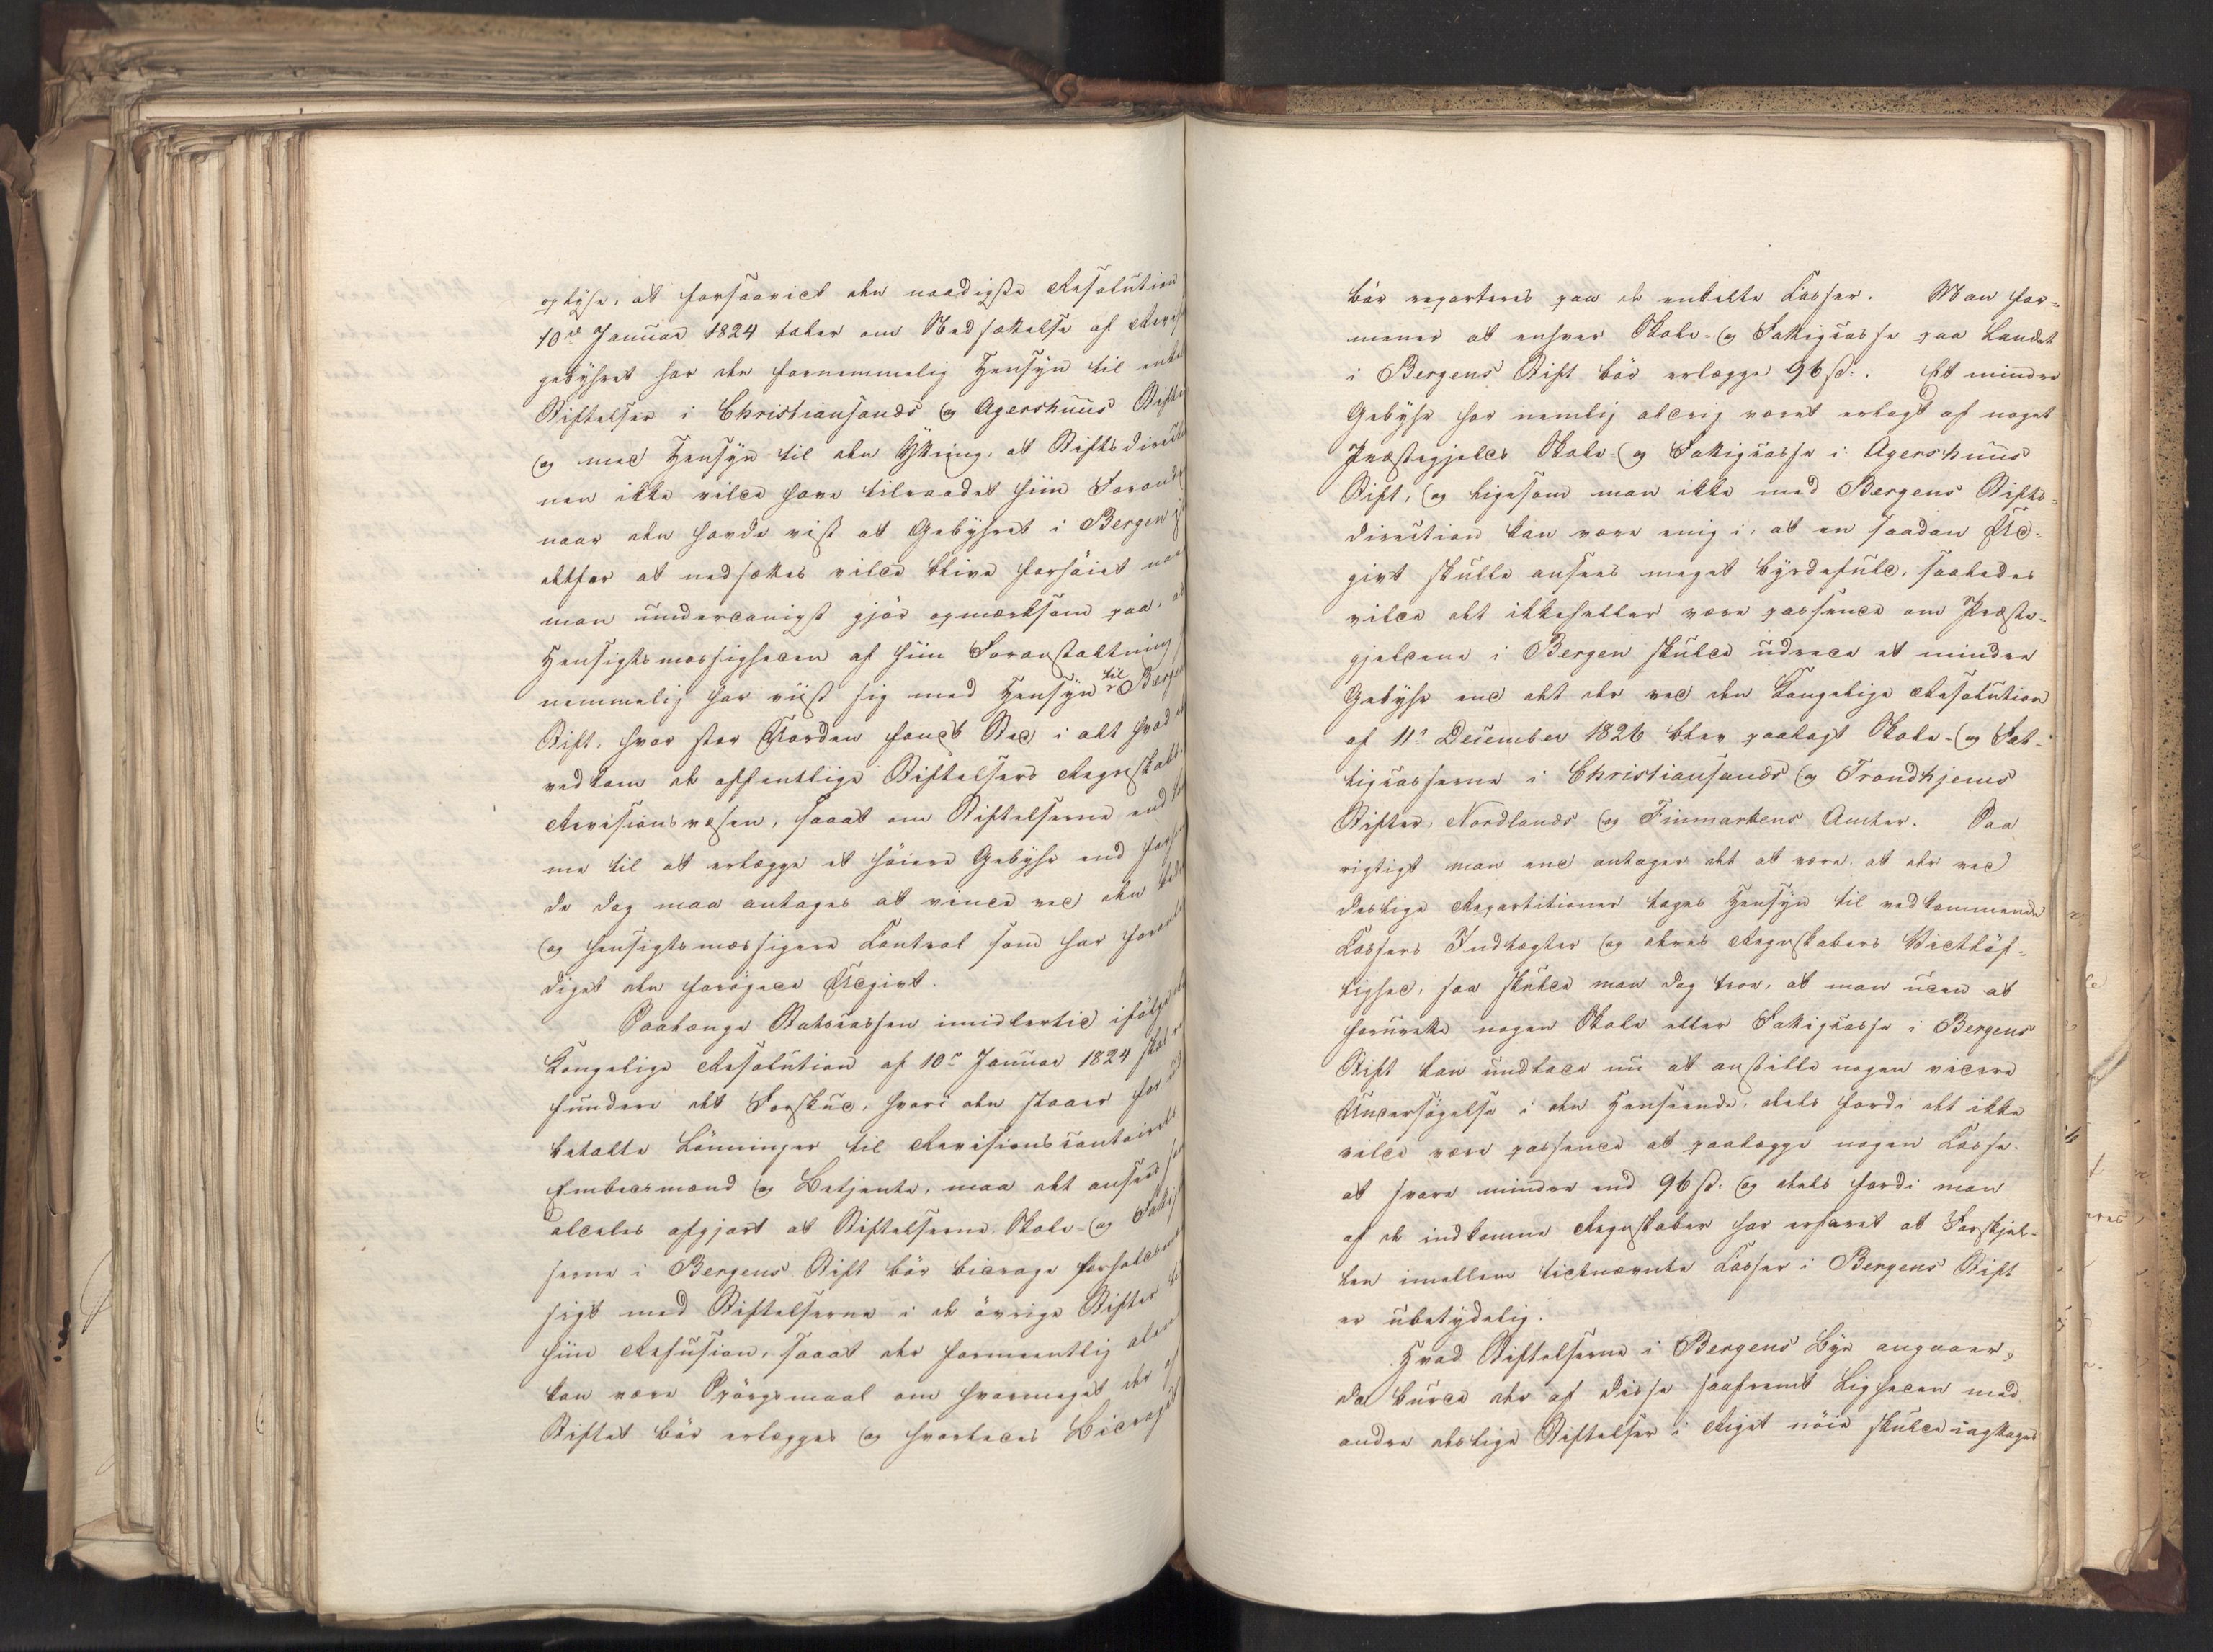 oplyse, at forsaavidt den naadigste Resolution
10de Januar 1824 taler om Nedsættelse af Revis
gebyhret har den fornemmelig Hensyn til enke
Stiftelser i Christiansands og Agershuus Stifte
og med Hensyn til den Yttring, at Stiftsdirecti
nen ikke vilde have tilraadet hiin Forand
naar den havde vist at Gebyhret i Bergen i
dtfor at nedsættes vilde blive forhöiet maa
man underdanigst gjör opmærksom paa, at
Hensigtsmæssigheden af hiin Foranstaltning
nemmelig har viist sig med Hensyn til Bergen
Stift, hvor stor Uorden fandt Sted i alt hvad
vedkom de offentlige Stiftelsers Regnskabs-
Revisionsvæsen, saaat om Stiftelserne end
me til at erlægge et höiere Gebyhr end för
de dog maa antages at vinde ved den bed
og hensigtsmæssigere Control som har foran
diget den forögede Udgivt.
Saalænge Statscassen imidlertid ifölge
Kongelige Resolution af 10de Januar 1824 skal
fundere det Forskud, hvori den staaer for ud
betalte Lönninger til Revisionscontoirets
Embedsmænd og Betjente, maa det ansees som
aldeles afgjort at Stiftelserne, Skole- og Fattig
serne i Bergens Stift bör bidrage forholdsm
sigt med Stiftelserne i de övrige Stifter til
hiin Refusion, saaat der formeentlig alene
kan være Spörgsmaal om hvormeget der af
Stiftet bör erlægges og hvorledes Bidraget
bör reparteres paa de enkelte Casser. Man for-
mener at enhver Skole- og Fattigcasse paa Landet
i Bergens Stift bör erlægge 96 ß. Et mindre
Gebyhr har nemlig aldrig været erlagt af noget
Præstegjelds Skole- og Fattigcasse i Agershuus
Stift, og ligesom man ikke med Bergens Stifts-
direction kan være enig i, at en saadan Ud-
givt skulle ansees meget byrdefuld, saaledes
vilde det ikkeheller være passende om Præste-
gjeldene i Bergen skulde udrede et mindre
Gebyhr end det der ved den Kongelige Resolution
af 11te December 1826 blev paalagt Skole- og Fat-
tigcasserne i Christiansands og Trondhjems
Stifter, Nordlands og Finmarkens Amter. Saa
rigtigt man end antager det at være, at der ved
deslige Repartitioner tages Hensyn til vedkommende
Cassers Indtægter og deres Regnskabers Vidtlöf-
tighed, saa skulde man dog troe, at man uden at
forurette nogen Skole eller Fattigcasse i Bergens
Stift kan undlade nu at anstille nogen videre
Undersögelse i den Henseende, deels fordi det ikke
vilde være passende at paalægge nogen Casse
at svare mindre end 96 ß. og deels fordi man
af de indkomne Regnskaber har erfaret at Forskjel-
len imellem tidtnævnte Casser i Bergens Stift
er ubetydelig.
Hvad Stiftelserne i Bergens Bye angaaer,
da burde der af disse saafremt Ligheden med
andre deslige Stiftelser i Riget nöie skulde iagttages